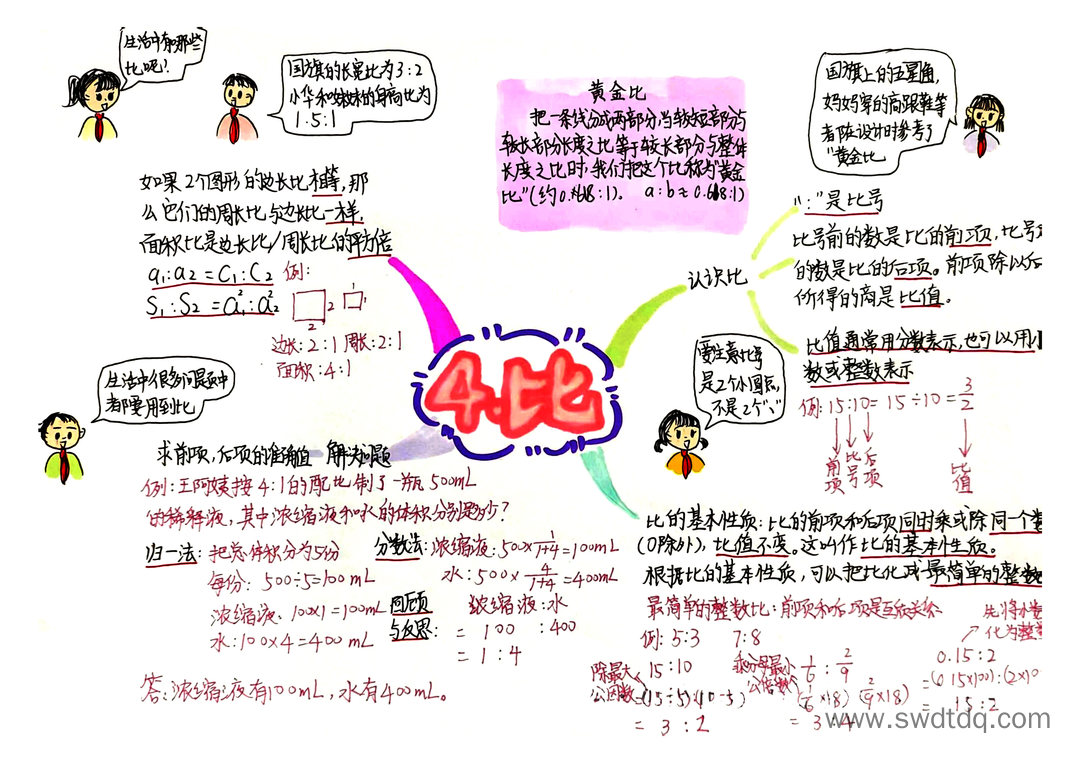 生活中有哪些
比呢?
国旗的长宽比为3:2
小华和妹妹的身高比为
1.5:1
黄金比
把一条线分成两部分,当较短部分与
较长部分长度之比等于较长部分与整体
长度之比时,我们把这个比称为"黄金
比"(约0.618:1). a:b≈0.618:1)
国旗上的五星角,
妈妈穿的高跟鞋等
者都在设计时参考了
"黄金比
如果2个图形的边长比相等,那
么它们的周长比与边长比一样,
面积比是边长比/周长比的平方倍
a₁:a₂=C₁:C₂ 例:
S₁:S₂=a₁²:a₂²
2 1
2 1
边长:2:1 周长:2:1
面积:4:1
4.比
认识比
":"是比号
比号前的数是比的前项,比号
的数是比的后项。前项除以后
所得的商是比值。
比值通常用分数表示,也可以用小
数或整数表示
例:15:10=15÷10=3/2
前项 比号 后项 比值
要注意比号
是2个小圆点,
不是2个"、"
生活中很多问题中
都要用到比
求前项,后项的准确值 解决问题
例:王阿姨按4:1的配比制了一瓶500mL
的稀释液,其中浓缩液和水的体积分别是多少?
归一法:把总体积分为5份
每份:500÷5=100mL
浓缩液:100×1=100mL
水:100×4=400mL
分数法:浓缩液:500×1/1+4=100mL
水:500×4/1+4=400mL
回顾
与反思:
浓缩液:水
=100:400
=1:4
答:浓缩液有100mL,水有400mL。
比的基本性质:比的前项和后项同时乘或除同一个数
(0除外),比值不变。这叫作比的基本性质。
根据比的基本性质,可以把比化成最简单的整数
最简单的整数比:前项和后项是互质关系
例:5:3 7:8
除最大
公因数
15:10
=(15÷5):(10÷5)
=3:2
乘分母最小
公倍数
1/6:2/9
(1/6×18)(2/9×18)
=3:4
先将小数
化为整数
0.15:2
=(0.15×100):(2×10
=15:2
www.swdtdq.com